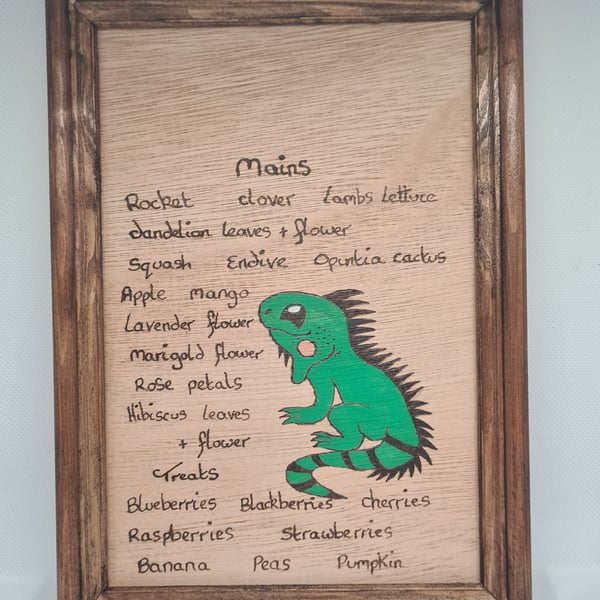 Mains
Rocket clover Lambs Lettuce
dandelion leaves + flower
Squash Endive Opintia cactus
Apple mango
Lavender flower
Marigold flower
Rose petals
Hibiscus leaves
+ flower
Treats
Blueberries Blackberries cherries
Raspberries Strawberries
Banana Peas Pumpkin